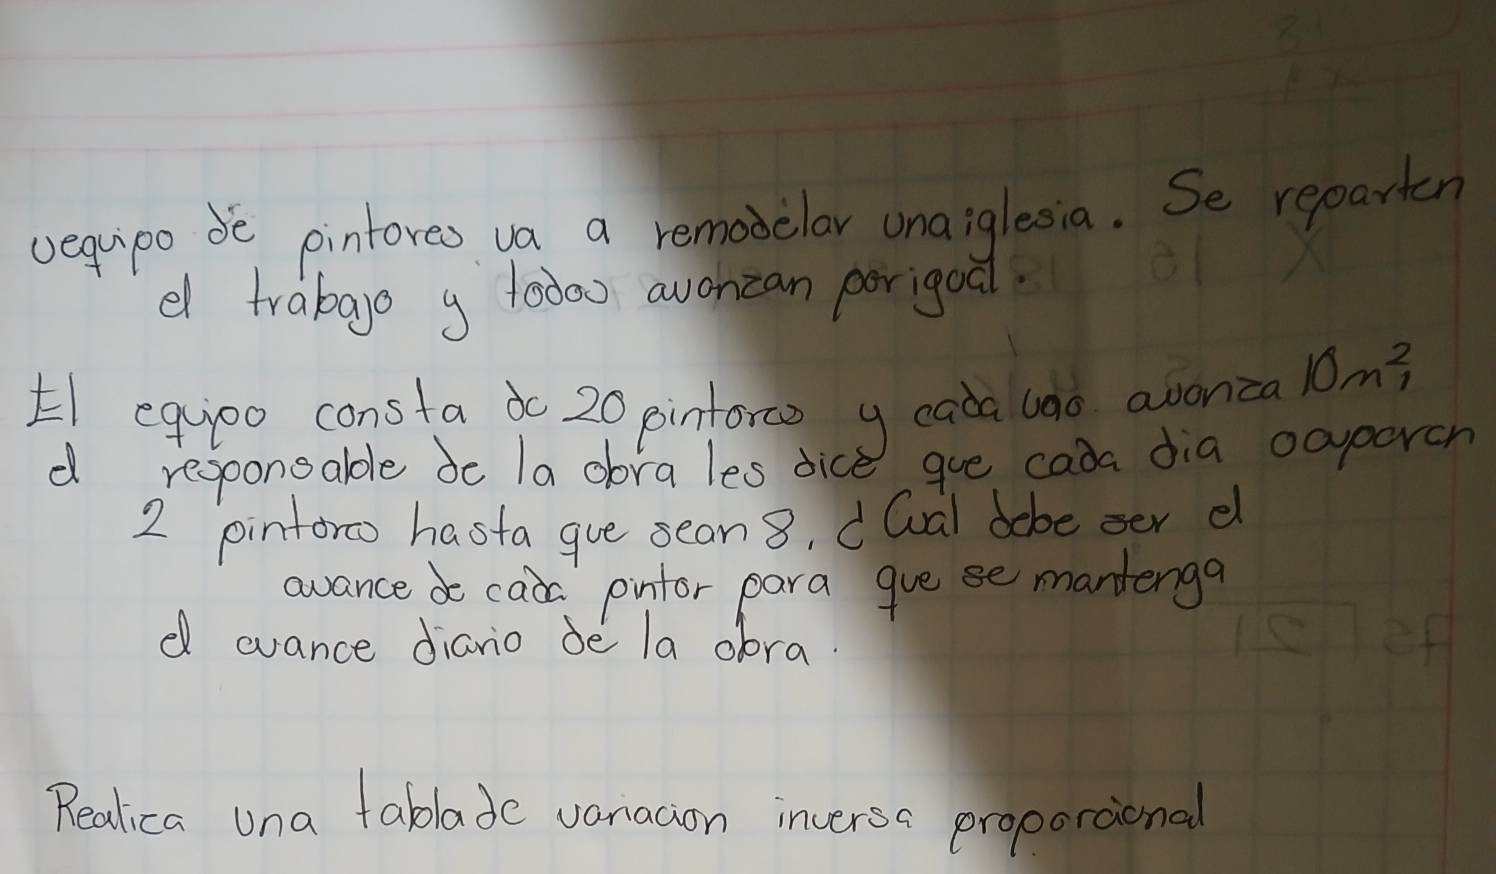 uequipo de pintores va a remodelar una iglesia. Se reparten
el trabajo y todos avanzan por igual.
El equipo consta de 20 pintores y cada uno avanza 10m²,
el responsable de la obra les dice que cada dia
2 pintores hasta que sean 8, ¿Cual debe ser el
avance de cada pintor para que se mantenga
el avance diario de la obra.
Realica una tabla de variacion inversa proporcional